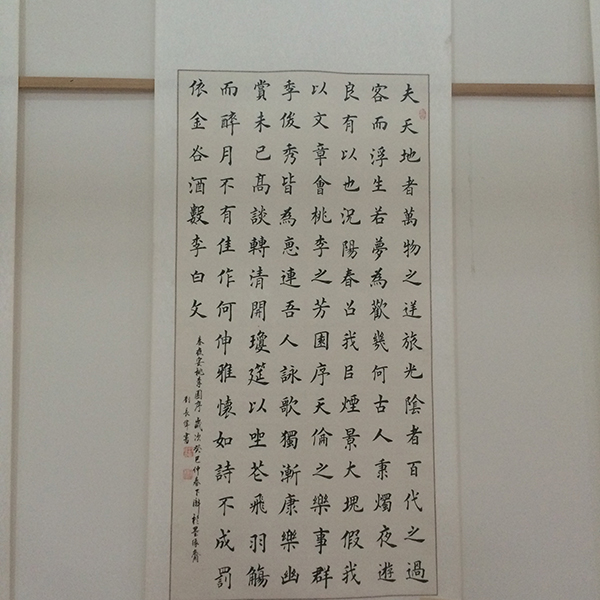 夫天地者萬物之逆旅光陰者百代之過
客而浮生若夢為歡幾何古人秉燭夜遊
良有以也況陽春召我㠯煙景大塊假我
以文章會桃李之芳園序天倫之樂事群
季俊秀皆為惠連吾人詠歌獨漸康樂幽
賞未已高談轉清開瓊筵以坐花飛羽觴
而醉月不有佳作何伸雅懷如詩不成罰
依金谷酒數李白文
春夜宴桃李園序 歲次癸巳仲春下澣於墨緣齋
長書